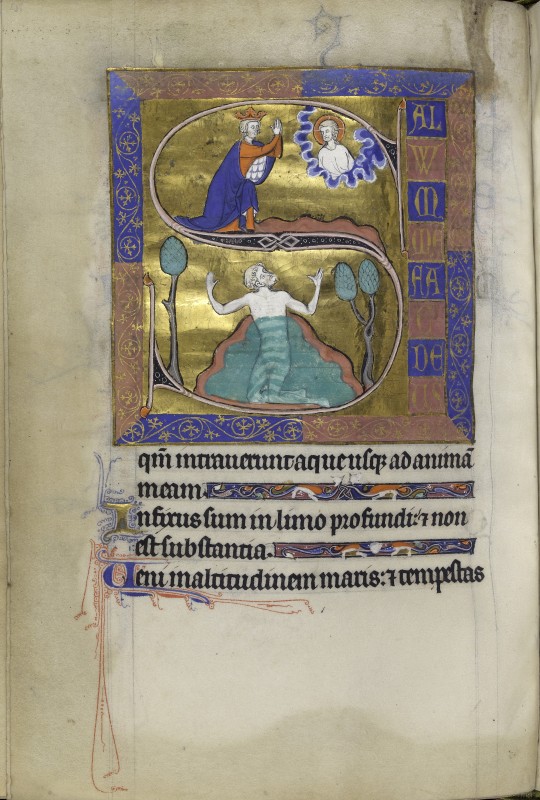 S
AL
W
M
ME
FA
C
DE
US
qm̅ intrauerunt aque usq; ad animā
meam.
Infixus sum in limo profundi: ⁊ non
est substantia.
Ueni in altitudinem maris: ⁊ tempestas